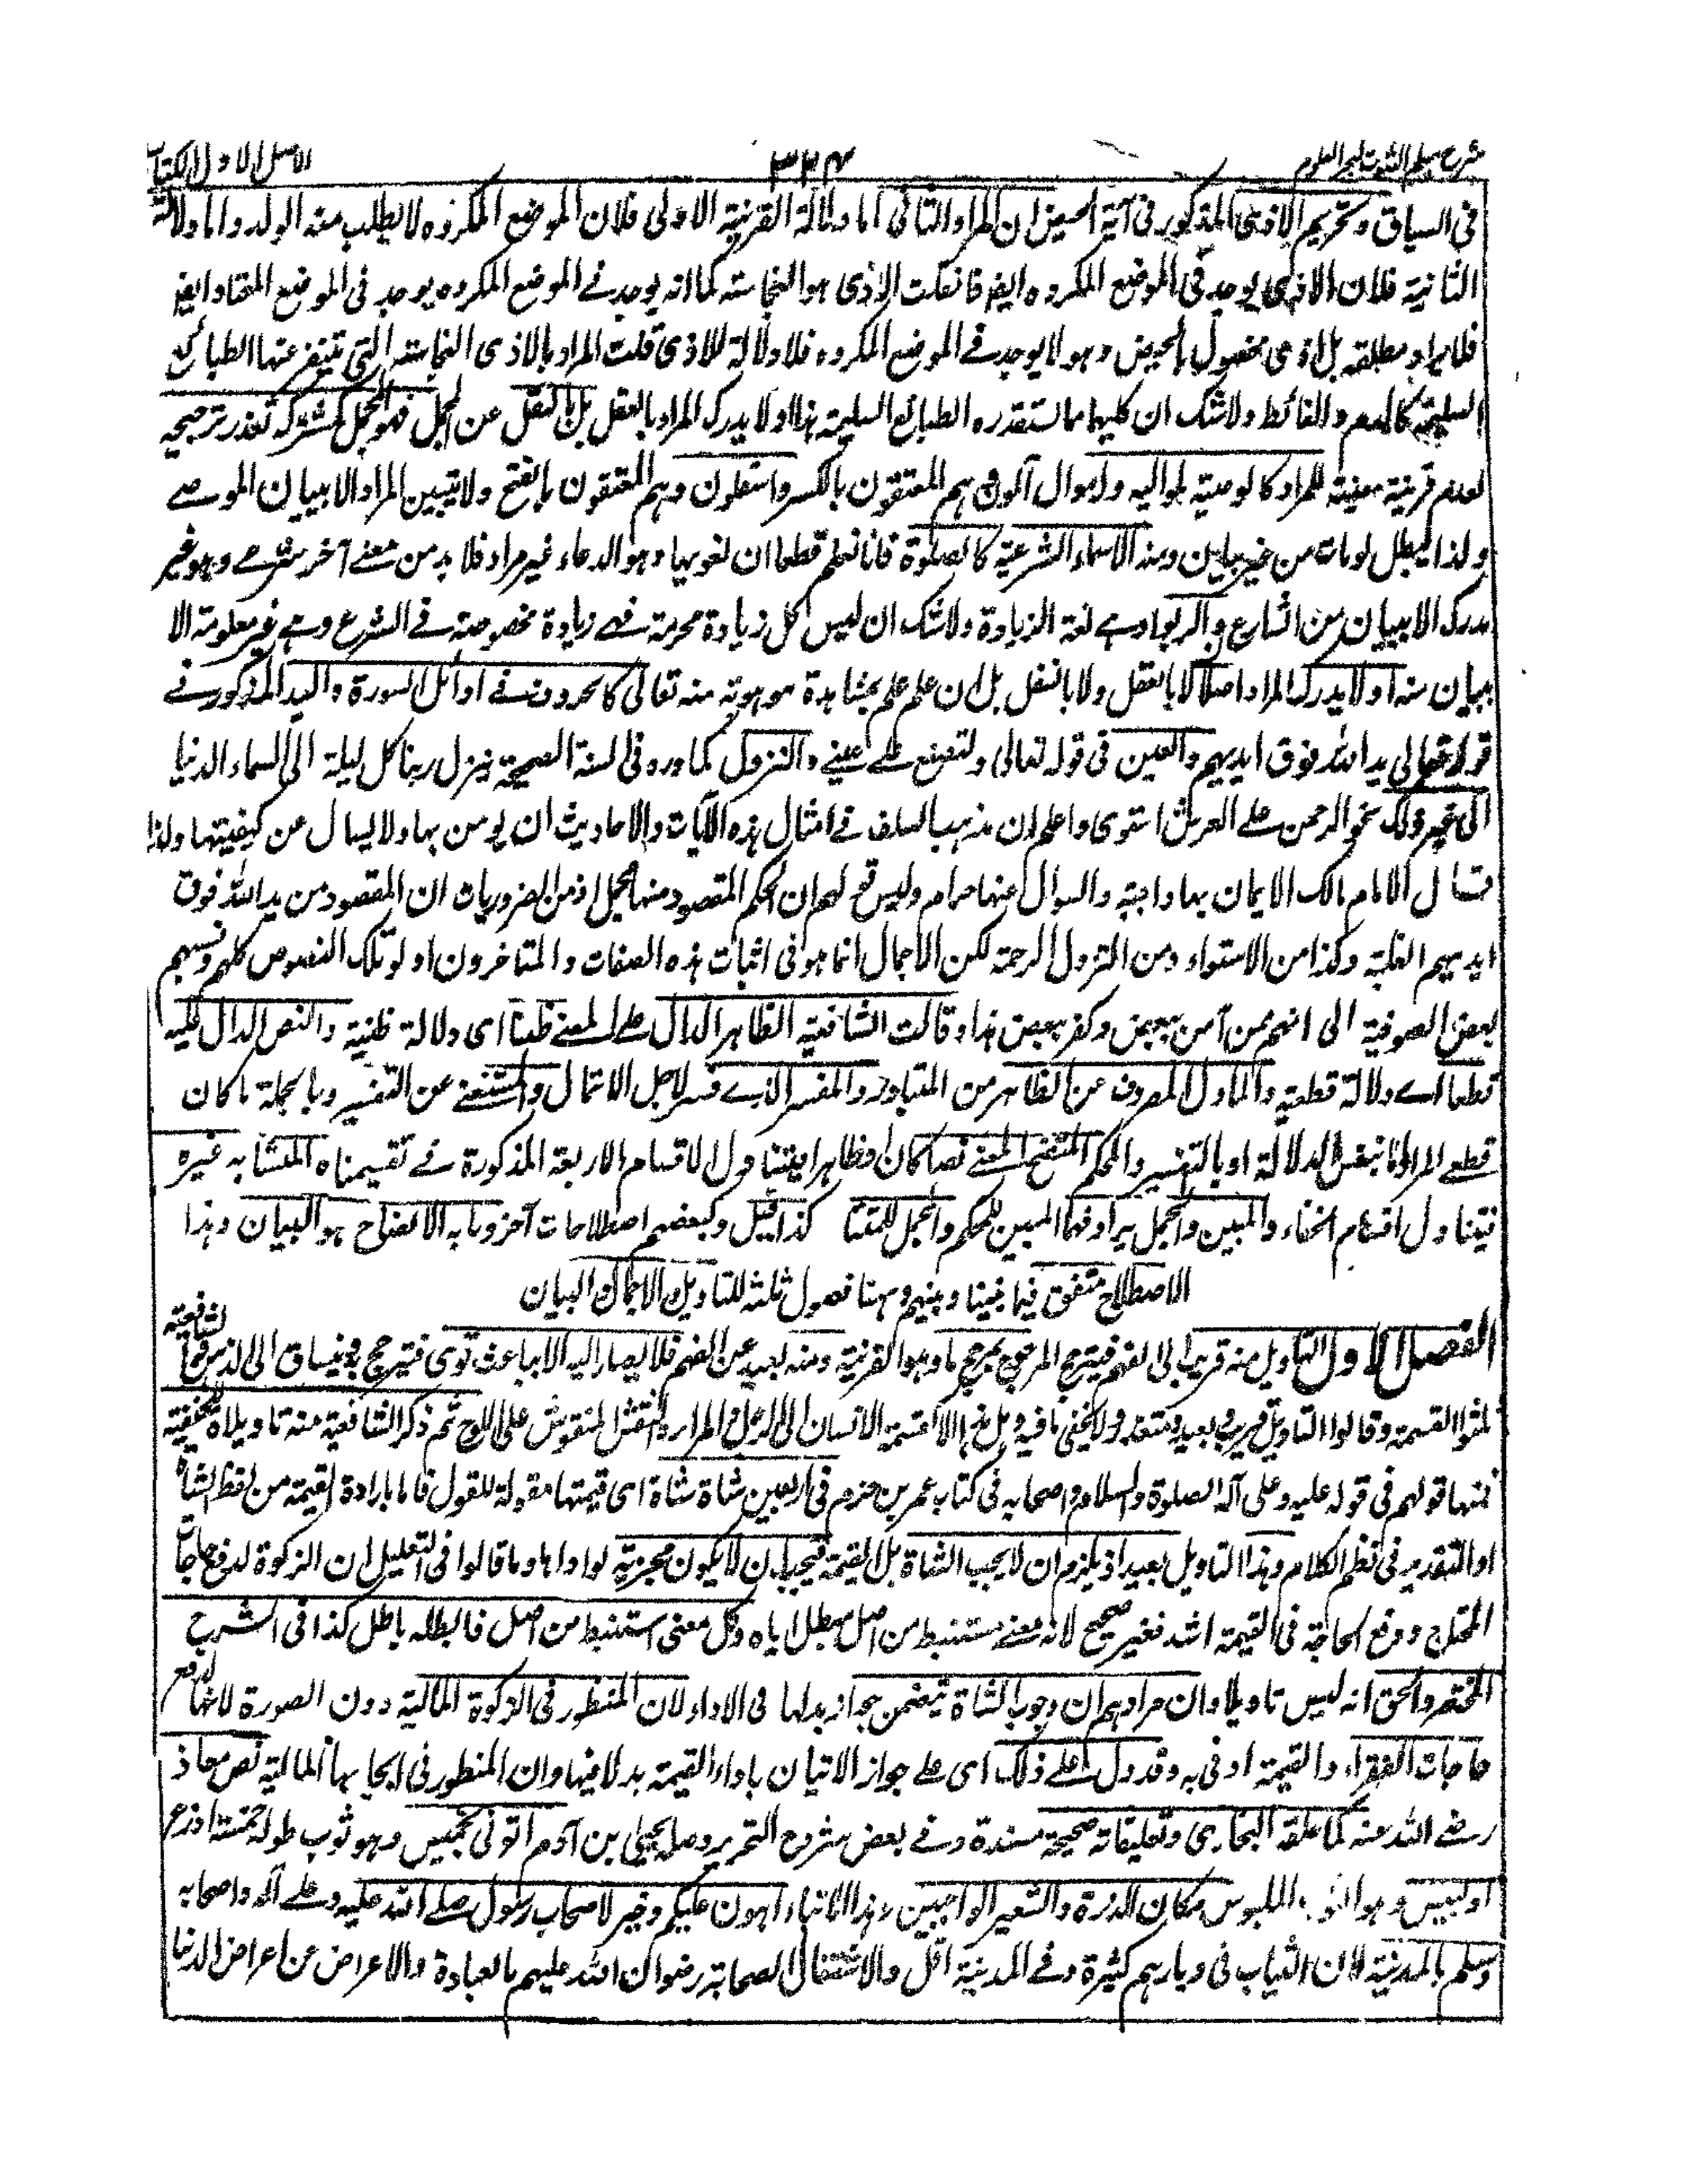 شرح مسلم الثبوت لبحر العلوم ٣٢٤ الاصل الاول الكتاب
فى السياق وتحريم الاذى المذكور فى آية الحيض ان المراد الثانى اما دلالة القرينة الاولى فلان الموضع المكروه لا يطلب منه الولد واما دلالة
الثانية فلان الاذى يوجد فى الموضع المكروه ايضا فان قلت الاذى هو النجاسة كما انه يوجد فى الموضع المكروه يوجد فى الموضع المعتاد ايضا
فلا يراد مطلقه بل اذى مخصوص بالحيض وهو لا يوجد فى الموضع المكروه فلا دلالة للاذى قلت المراد بالاذى النجاسة التى يتنفر عنها الطبائع
السليمة كالدم والغائط ولا شك ان كليهما مما تستقذره الطبائع السليمة هذا اولا يدرك المراد بالعقل بل بالنقل عن المجمل فهو المجمل كمشترك تعذر ترجيحه
لعدم قرينة معينة للمراد كالوصية لمواليه والموال هم المعتقون بالكسر واسفلون وهم المعتقون بالفتح ولا يتبين المراد الا ببيان الموصى
ولذا يبطل لو مات من غير بيان ومنه الاسماء الشرعية كالصلوة فانا نعلم قطعا ان لغويها وهو الدعاء غير مراد فلا بد من معنى آخر شرعى وهو غير
مدرك الا ببيان من الشارع والربوا وهى لغة الزيادة ولا شك ان ليس كل زيادة محرمة فهى زيادة مخصوصة فى الشرع وهى غير معلومة الا
ببيان منه او لا يدرك المراد اصلا لا بالعقل ولا بالنقل بل ان علم علم بمشاهدة موهوبة منه تعالى كالحروف فى اوائل السورة واليد المذكور فى
قوله تعالى يد الله فوق ايديهم والعين فى قوله تعالى ولتصنع على عينى والنزول كما ورد فى السنة الصحيحة ينزل ربنا كل ليلة الى السماء الدنيا
الى غير ذلك نحو الرحمن على العرش استوى واعلم ان مذهب السلف فى امثال هذه الآيات والاحاديث ان يومن بها ولا يسال عن كيفيتها ولذا
قال الامام مالك الايمان بها واجبة والسوال عنها حرام وليس ان الحكم المقصود منها مجمل اذ من الضروريات ان المقصود من يد الله فوق
ايديهم الغلبة وكذا من الاستواء ومن النزول الرحمة لكن الاجمال انما هو فى اثبات هذه الصفات والمتاخرون اولو تلك النصوص كلهم ونسبهم
بعض الصوفية الى انهم ممن آمن ببعض وكفر ببعض هذا وقالت الشافعية الظاهر الدال على المعنى ظنا اى دلالة ظنية والنص الدال عليه
قطعا اى دلالة قطعية والماول المصروف عن الظاهر من المتبادر والمفسر الذى فسر لاجل الاجمال والمستغنى عن التفسير وبالجملة ما كان
قطعى المراد اما بنفس الدلالة او بالتفسير والمحكم المتضح المعنى نصا كان او ظاهرا يتناول الاقسام الاربعة المذكورة فى تقسيمنا والمتشابه غيره
فيتناول اقسام الخفاء والمبين والمجمل يرادفهما المبين للمحكم والمجمل للمتشا كذا قيل ولبعضهم اصطلاحات آخر وما به الاتضاح هو البيان وهذا
الاصطلاح متفق فيما بيننا وبينهم وههنا فصول ثلثة للتاويل والاجمال والبيان
الفصل الاول التاويل منه قريب الى الفهم فيترجح المرجوح بمرجح ما وهو القرينة ومنه بعيد عن الفهم فلا يصار اليه الا بباعث قوى فيترجح به وينساق الى الذهن الشافعية
ثلثوا القسمة وقالوا التاويل قريب وبعيد ومتعذر ولا يخفى ما فيه وهل هذا الا كقسمة الانسان الى الرجل والمرأة والنقش المنقوش على اللوح ثم ذكر الشافعية منه تاويلات للحنفية
فمنها قولهم فى قوله عليه وعلى آله الصلوة والسلام واصحابه فى كتاب عمر بن حزم فى اربعين شاة شاة اى قيمتها مقولة للقول فاما بارادة القيمة من لفظ الشاة
او التقدير فى نظم الكلام وهذا التاويل بعيد اذ يلزم ان لا يجب الشاة بل القيمة فيجب ان لا يكون مجزية لو اداها وما قالوا فى التعليل ان الزكوة لدفع حاجات
المحتاج ودفع الحاجة فى القيمة اشد فغير صحيح لانه معنى مستنبط من اصل مبطل اياه وكل معنى استنبط من اصل فابطاله باطل كذا فى الشرح
المختصر والحق انه ليس تاويلا وان مرادهم ان وجوب الشاة تيضمن بجواز بدلها فى الاداء لان المنظور فى الزكوة المالية دون الصورة لانها لدفع
حاجات الفقراء والقيمة اوفى به وقد دل على ذلك اى على جواز الاتيان باداء القيمة بدلا فيها وان المنظور فى ايجابها المالية نص معاذ
رضى الله عنه كما علقه البخارى وتعليقاته صحيحة مسندة وفى بعض شروح التحرير وصله يحيى بن آدم ائتونى بخميس وهو ثوب طوله خمسة اذرع
او لبيس وهو الثوب الملبوس مكان الذرة والشعير الواجبين هذا الاتباء اهون عليكم وخير لاصحاب رسول صلى الله عليه وعلى آله واصحابه
وسلم بالمدينة لان الثياب فى ديارهم كثيرة وفى المدينة اقل والاشتغال الصحابة رضوان الله عليهم بالعبادة والاعراض عن اعراض الدنيا